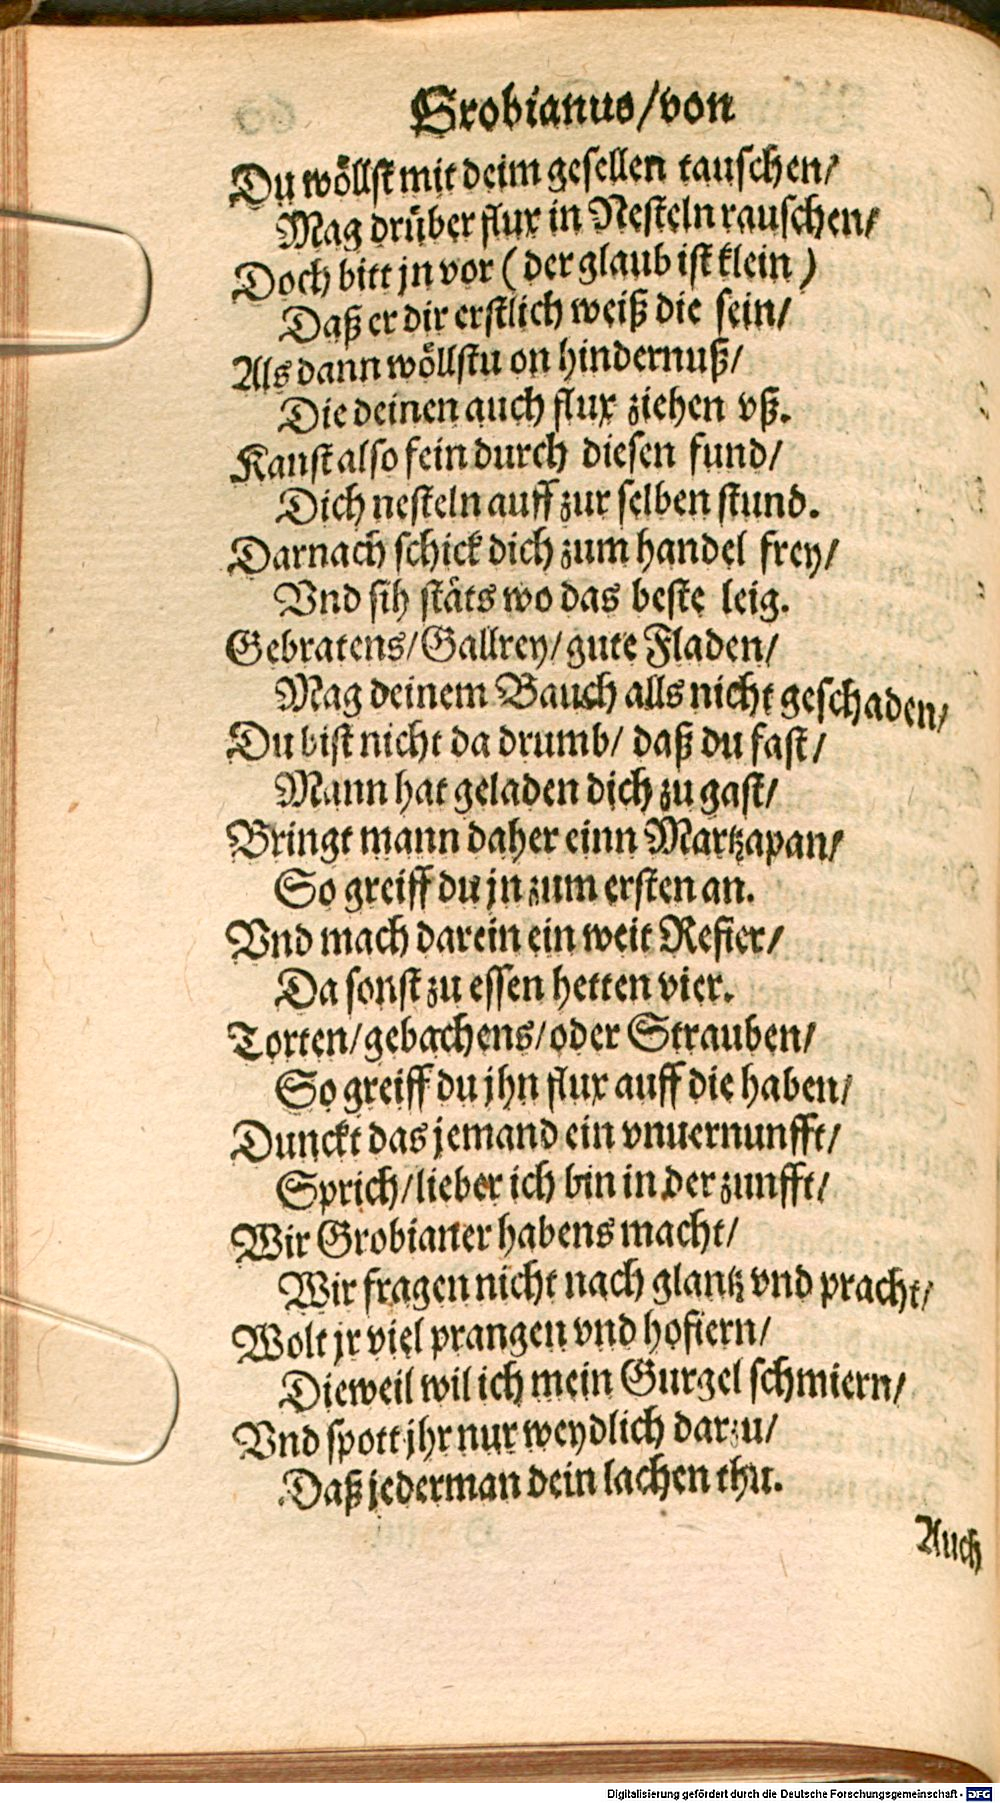 Grobianus/von
Du wöllst mit deim gesellen tauschen/
Mag drüber flux in Nesteln rauschen/
Doch bitt jn vor ( der glaub ist klein )
Daß er dir erstlich weiß die sein/
Als dann wöllstu on hindernuß/
Die deinen auch flux ziehen vß.
Kanst also fein durch diesen fund/
Dich nesteln auff zur selben stund.
Darnach schick dich zum handel frey/
Vnd sih stäts wo das beste leig.
Gebratens/Gallrey/gute Fladen/
Mag deinem Bauch alls nicht geschaden/
Du bist nicht da drumb/ daß du fast/
Mann hat geladen dich zu gast/
Bringt mann daher einn Martzapan/
So greiff du jn zum ersten an.
Vnd mach darein ein weit Refier/
Da sonst zu essen hetten vier.
Torten/gebachens/oder Strauben/
So greiff du jhn flux auff die haben/
Dunckt das jemand ein vnuernunfft/
Sprich/lieber ich bin in der zunfft/
Wir Grobianer habens macht/
Wir fragen nicht nach glantz vnd pracht/
Wolt jr viel prangen vnd hofiern/
Dieweil wil ich mein Gurgel schmiern/
Vnd spott jhr nur weydlich darzu/
Daß jederman dein lachen thu.
Auch
Digitalisierung gefördert durch die Deutsche Forschungsgemeinschaft - DFG